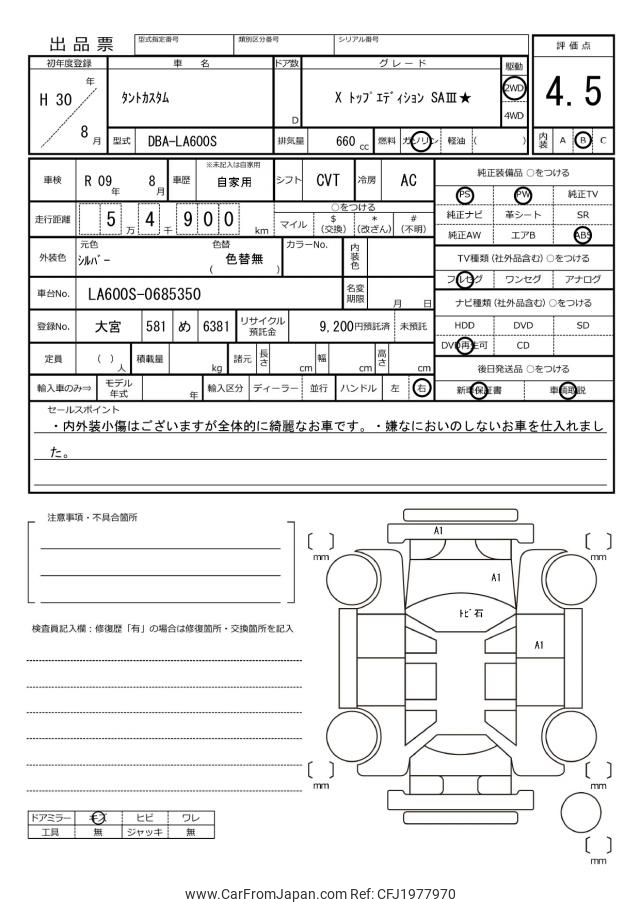 出品票 型式指定番号 類別区分番号 シリアル番号
評価点
初年度登録 車名 ドア数 グレード 駆動
H 30 年 8 月
タントカスタム
D
X トップエディション SAⅢ★
2WD
4WD
4.5
型式 DBA-LA600S 排気量 660 cc 燃料 ガソリン 軽油 ( )
内装 A B C
車検 R 09 年 8 月 車歴 ※未記入は自家用 自家用 シフト CVT 冷房 AC
純正装備品 ○をつける
PS PW 純正TV
純正ナビ 革シート SR
純正AW エアB ABS
走行距離 5 万 4 千 9 0 0 km
○をつける
マイル $ (交換) * (改ざん) # (不明)
外装色 元色 シルバー 色替 ( 色替無 ) カラーNo. 内装色
TV種類 (社外品含む) ○をつける
フルセグ ワンセグ アナログ
車台No. LA600S-0685350 名変期限 月 日
ナビ種類 (社外品含む) ○をつける
HDD DVD SD
DVD再生可 CD
登録No. 大宮 581 め 6381 リサイクル預託金 9,200円預託済 未預託
定員 ( ) 人 積載量 kg 諸元 長さ cm 幅 cm 高さ cm
後日発送品 ○をつける
新車保証書 車輌取説
輸入車のみ⇒ モデル年式 年 輸入区分 ディーラー 並行 ハンドル 左 右
セールスポイント
・内外装小傷はございますが全体的に綺麗なお車です。・嫌なにおいのしないお車を仕入れまし
た。
注意事項・不具合箇所
検査員記入欄：修復歴「有」の場合は修復箇所・交換箇所を記入
A1
A1
トビ石
A1
mm
mm
mm
mm
mm
ドアミラー キズ ヒビ ワレ
工具 無 ジャッキ 無
www.CarFromJapan.com Ref: CFJ1977970